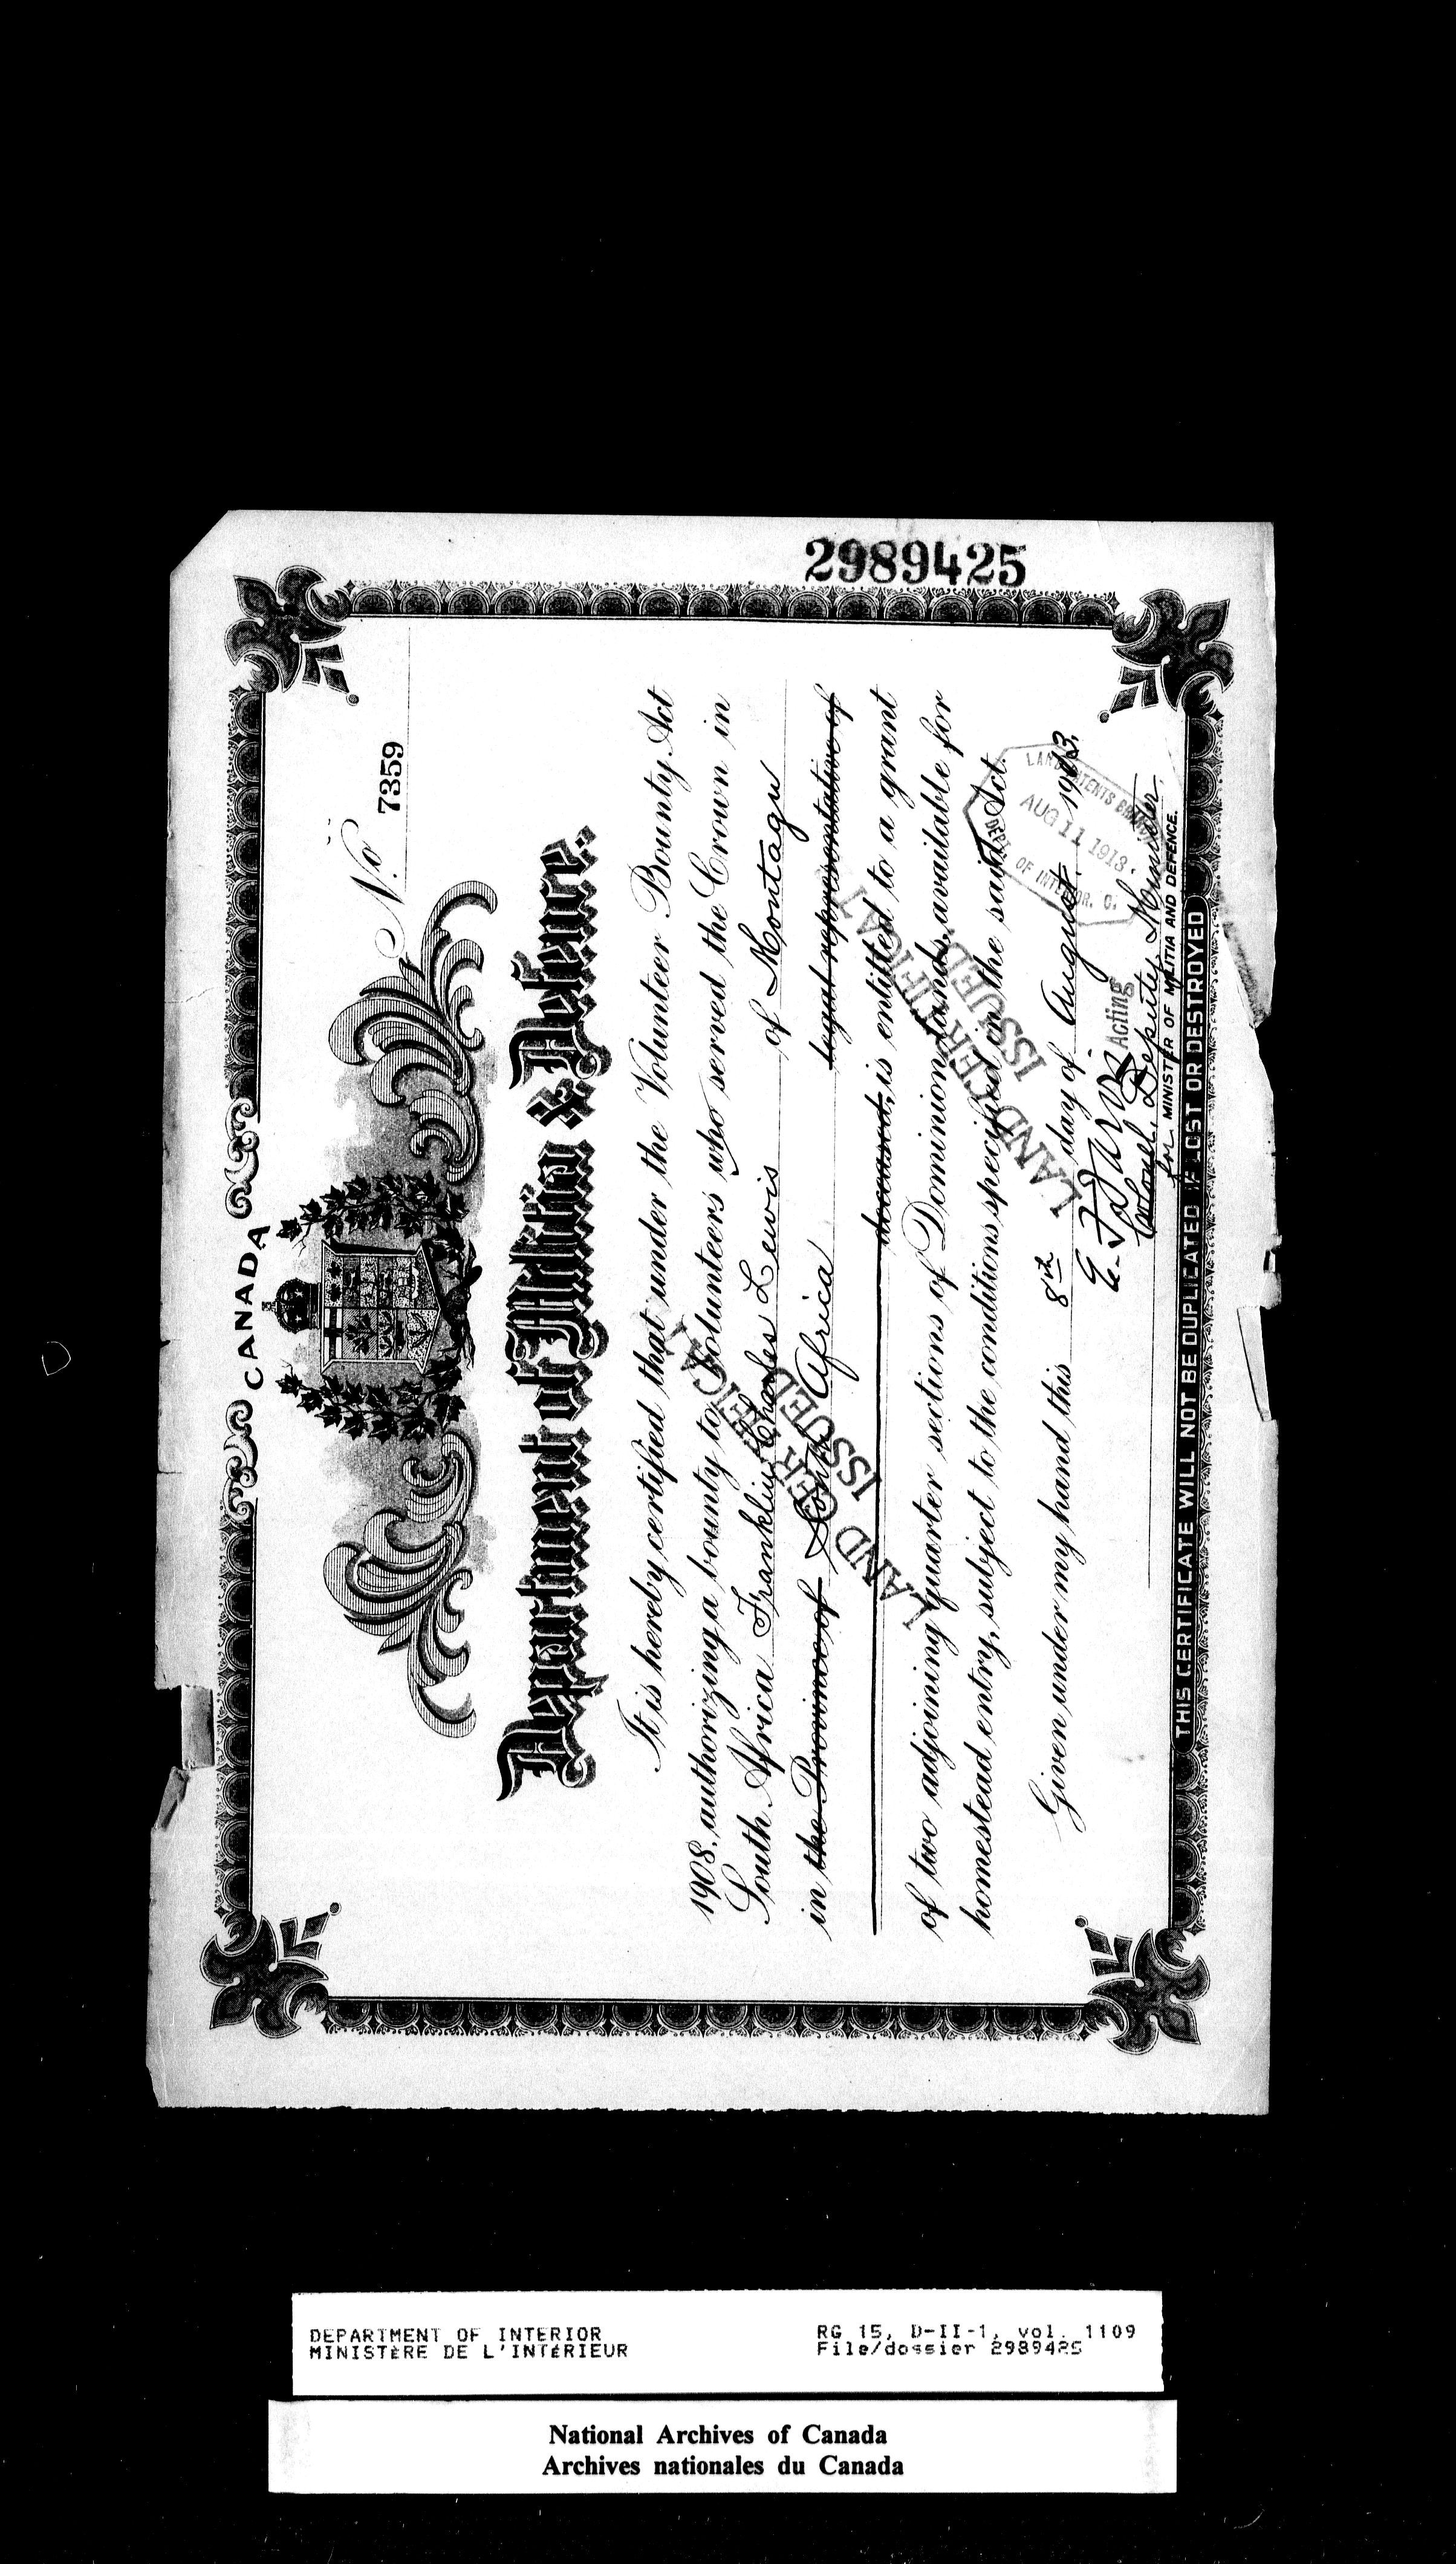 2989425
CANADA
No. 7359
Department of Militia & Defence.
It is hereby certified that under the Volunteer Bounty Act
1908, authorizing a bounty to volunteers who served the Crown in
South Africa Franklin Charles Lewis of Montagu
in the Province of South Africa legal representative of
deceased, is entitled to a grant
of two adjoining quarter sections of Dominion lands available for
homestead entry, subject to the conditions specified in the said Act.
Given under my hand this 8th day of August 1913.
Acting
Colonel, Deputy Minister,
for MINISTER OF MILITIA AND DEFENCE.
THIS CERTIFICATE WILL NOT BE DUPLICATED IF LOST OR DESTROYED
LAND CERTIFICATE
ISSUED
LAND CERTIFICATE
ISSUED.
LAND PATENTS BRANCH
AUG 11 1913.
DEPT. OF INTERIOR. O.
DEPARTMENT OF INTERIOR
MINISTÈRE DE L'INTÉRIEUR
RG 15, D-II-1, vol. 1109
File/dossier 2989425
National Archives of Canada
Archives nationales du Canada